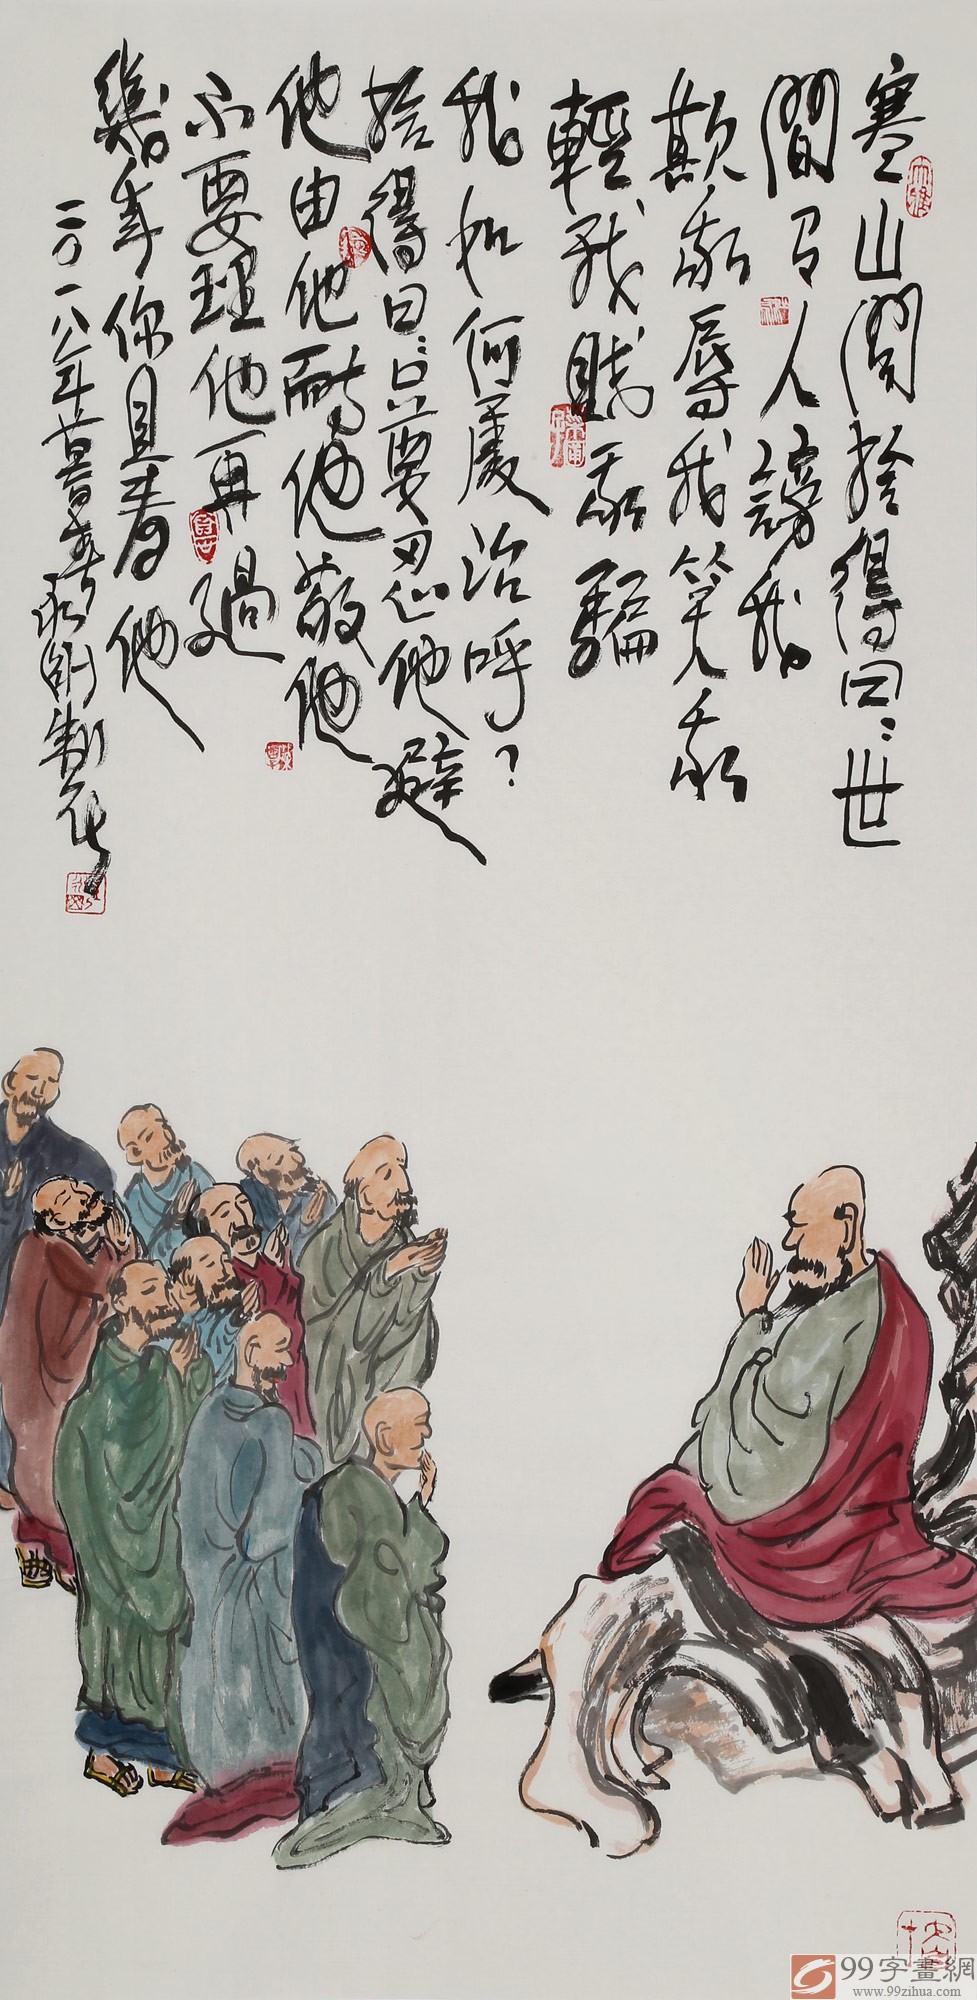 寒山问拾得曰：世
間有人谤我
欺我辱我笑我
輕我賤我騙
我如何處治呼？
拾得曰：只要忍他避
他由他耐他敬他
不要理他再過
幾年你且看他
二〇一八年暮春
99字畫網
www.99zihua.com